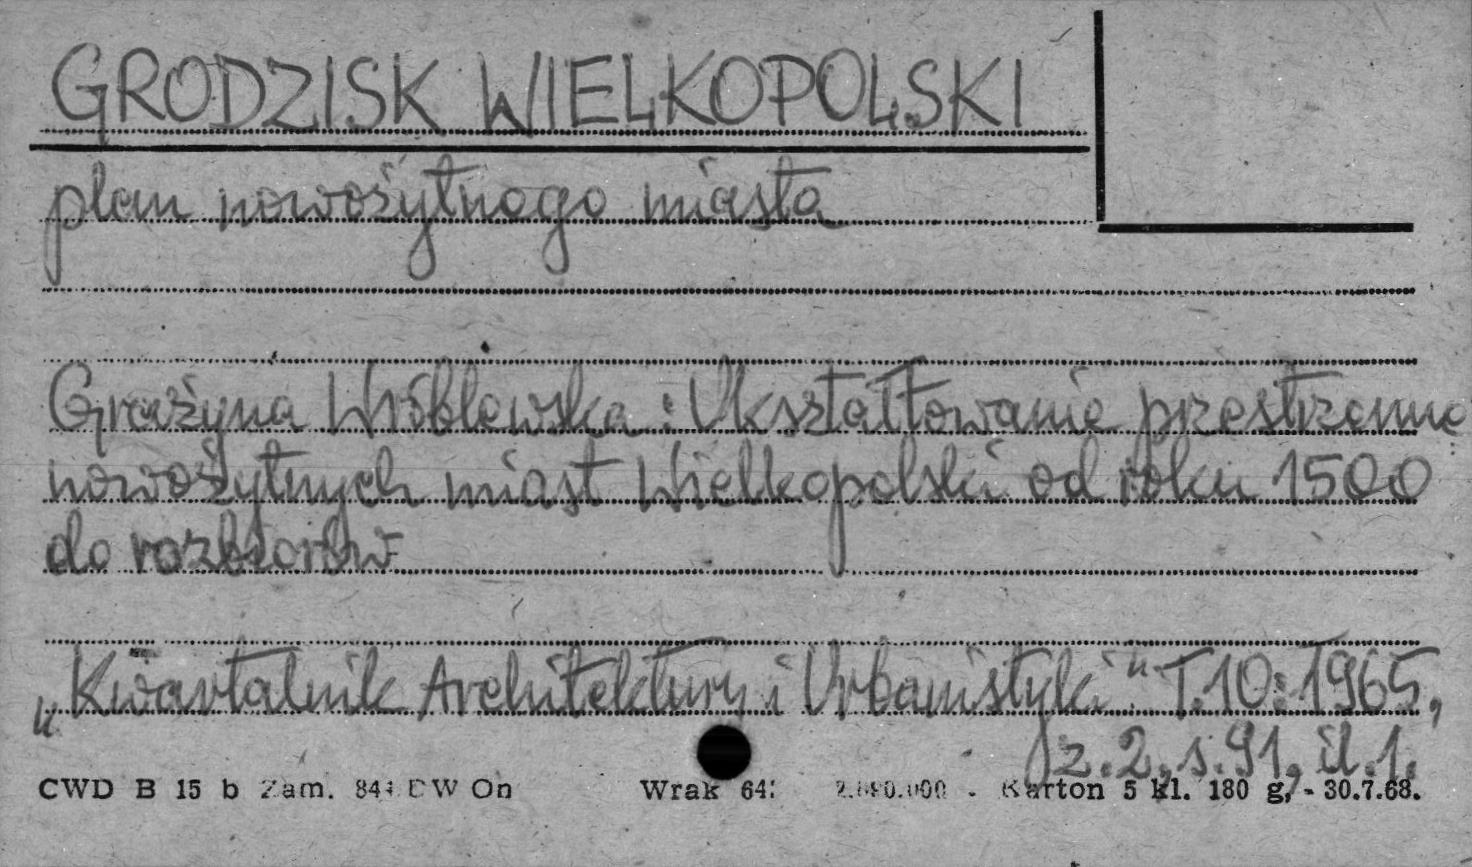 GRODZISK WIELKOPOLSKI
plan nowożytnego miasta
Grażyna Wróblewska: Ukształtowanie przestrzenne
nowożytnych miast Wielkopolski od roku 1500
do rozbiorów
„Kwartalnik Architektury i Urbanistyki" T.10:1965,
z.2, s.91, il.1.
CWD B 15 b Zam. DW On Wrak Karton 5 kl. 180 g, - 30.7.68.